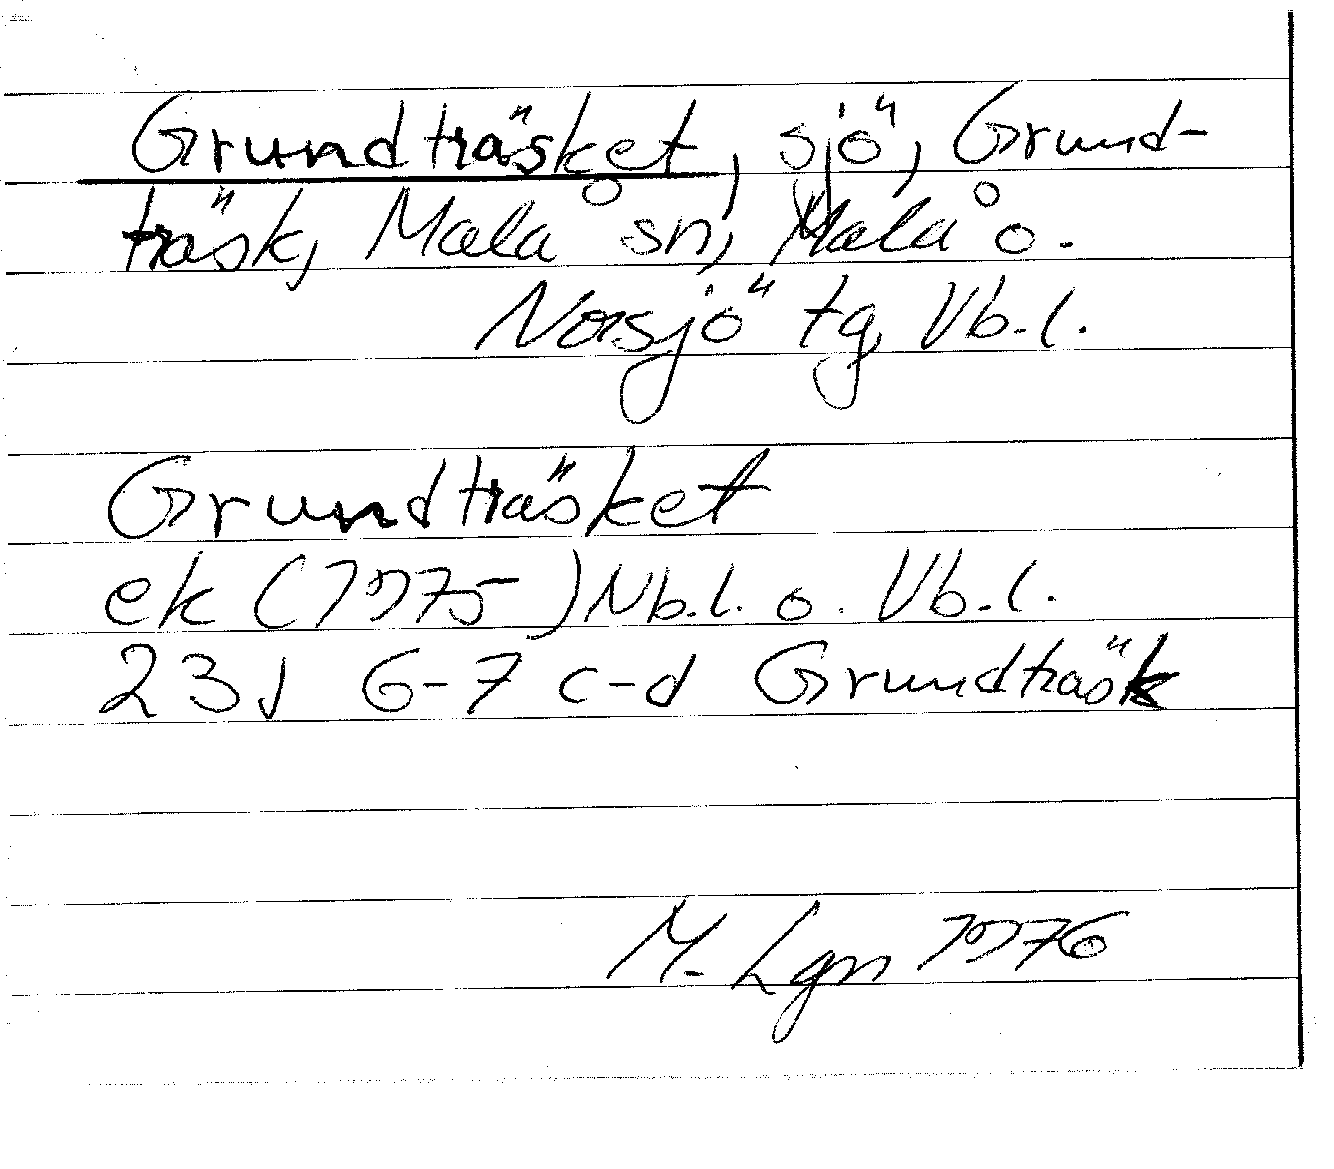 Grundträsket, sjö, Grund-
träsk, Malå sn, Malå o.
Norsjö tg, Vb.l.
Grundträsket
ek (1975) Nb.l. o. Vb.l.
23J 6-7 c-d Grundträsk
M. Lgn 1976